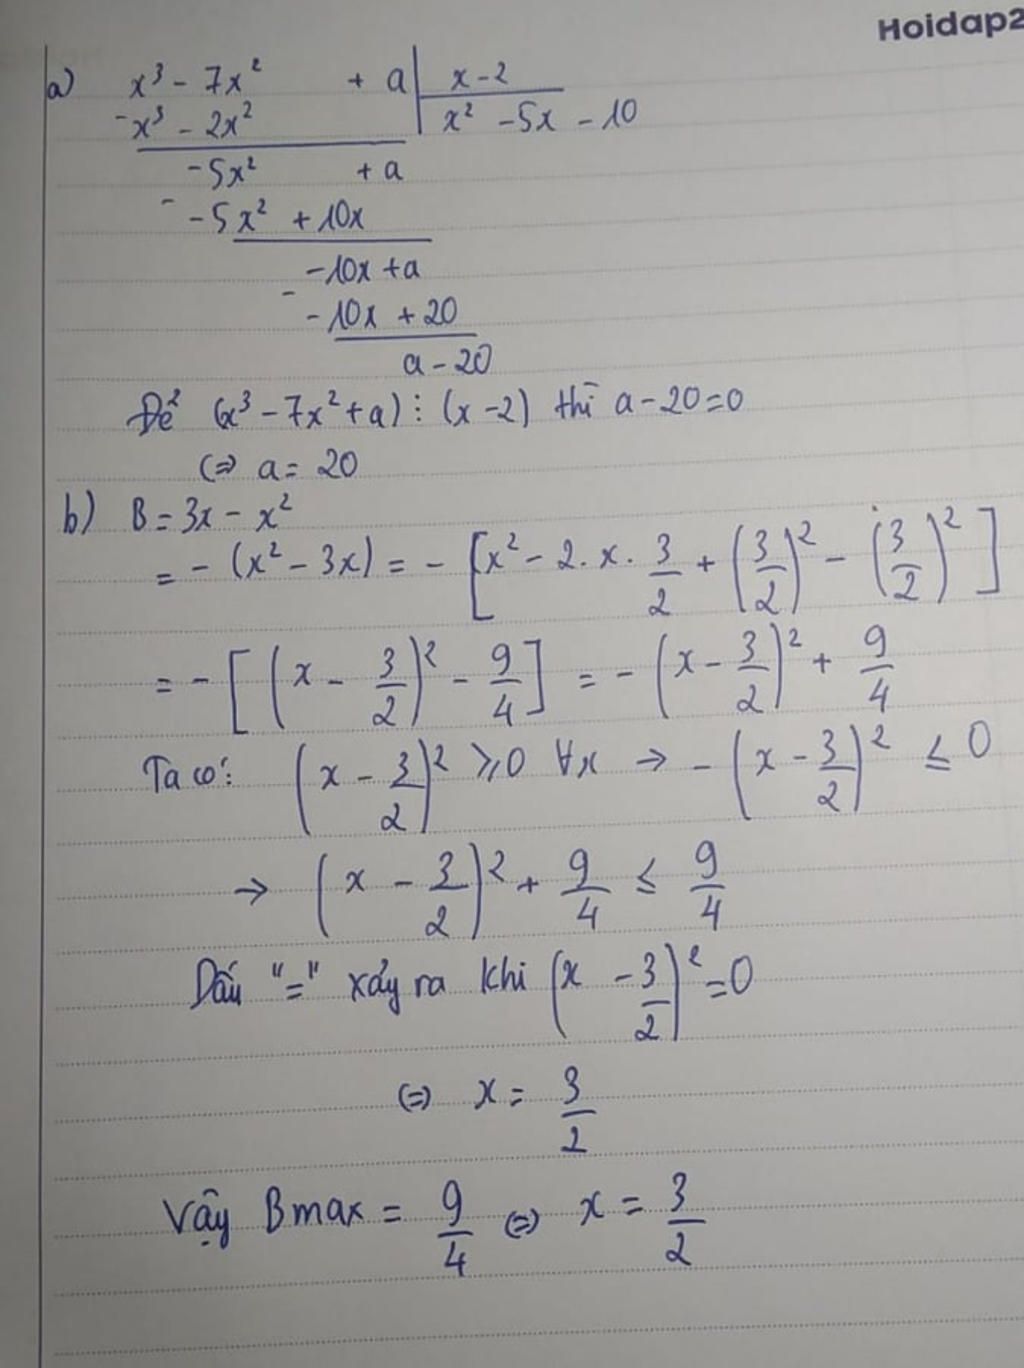 Hoidap2
a) x³ - 7x² + a | x - 2
- x³ - 2x² x² - 5x - 10
- 5x² + a
- - 5x² + 10x
- 10x + a
- - 10x + 20
a - 20
Để (x³ - 7x² + a) ⋮ (x - 2) thì a - 20 = 0
(=) a = 20
b) B = 3x - x²
= - (x² - 3x) = - [x² - 2. x. 3/2 + (3/2)² - (3/2)²]
= - [(x - 3/2)² - 9/4] = - (x - 3/2)² + 9/4
Ta có: (x - 3/2)² ≥ 0 ∀x → - (x - 3/2)² ≤ 0
→ (x - 3/2)² + 9/4 ≤ 9/4
Dấu "=" xảy ra khi (x - 3/2)² = 0
(=) x = 3/2
Vậy Bmax = 9/4 (=) x = 3/2